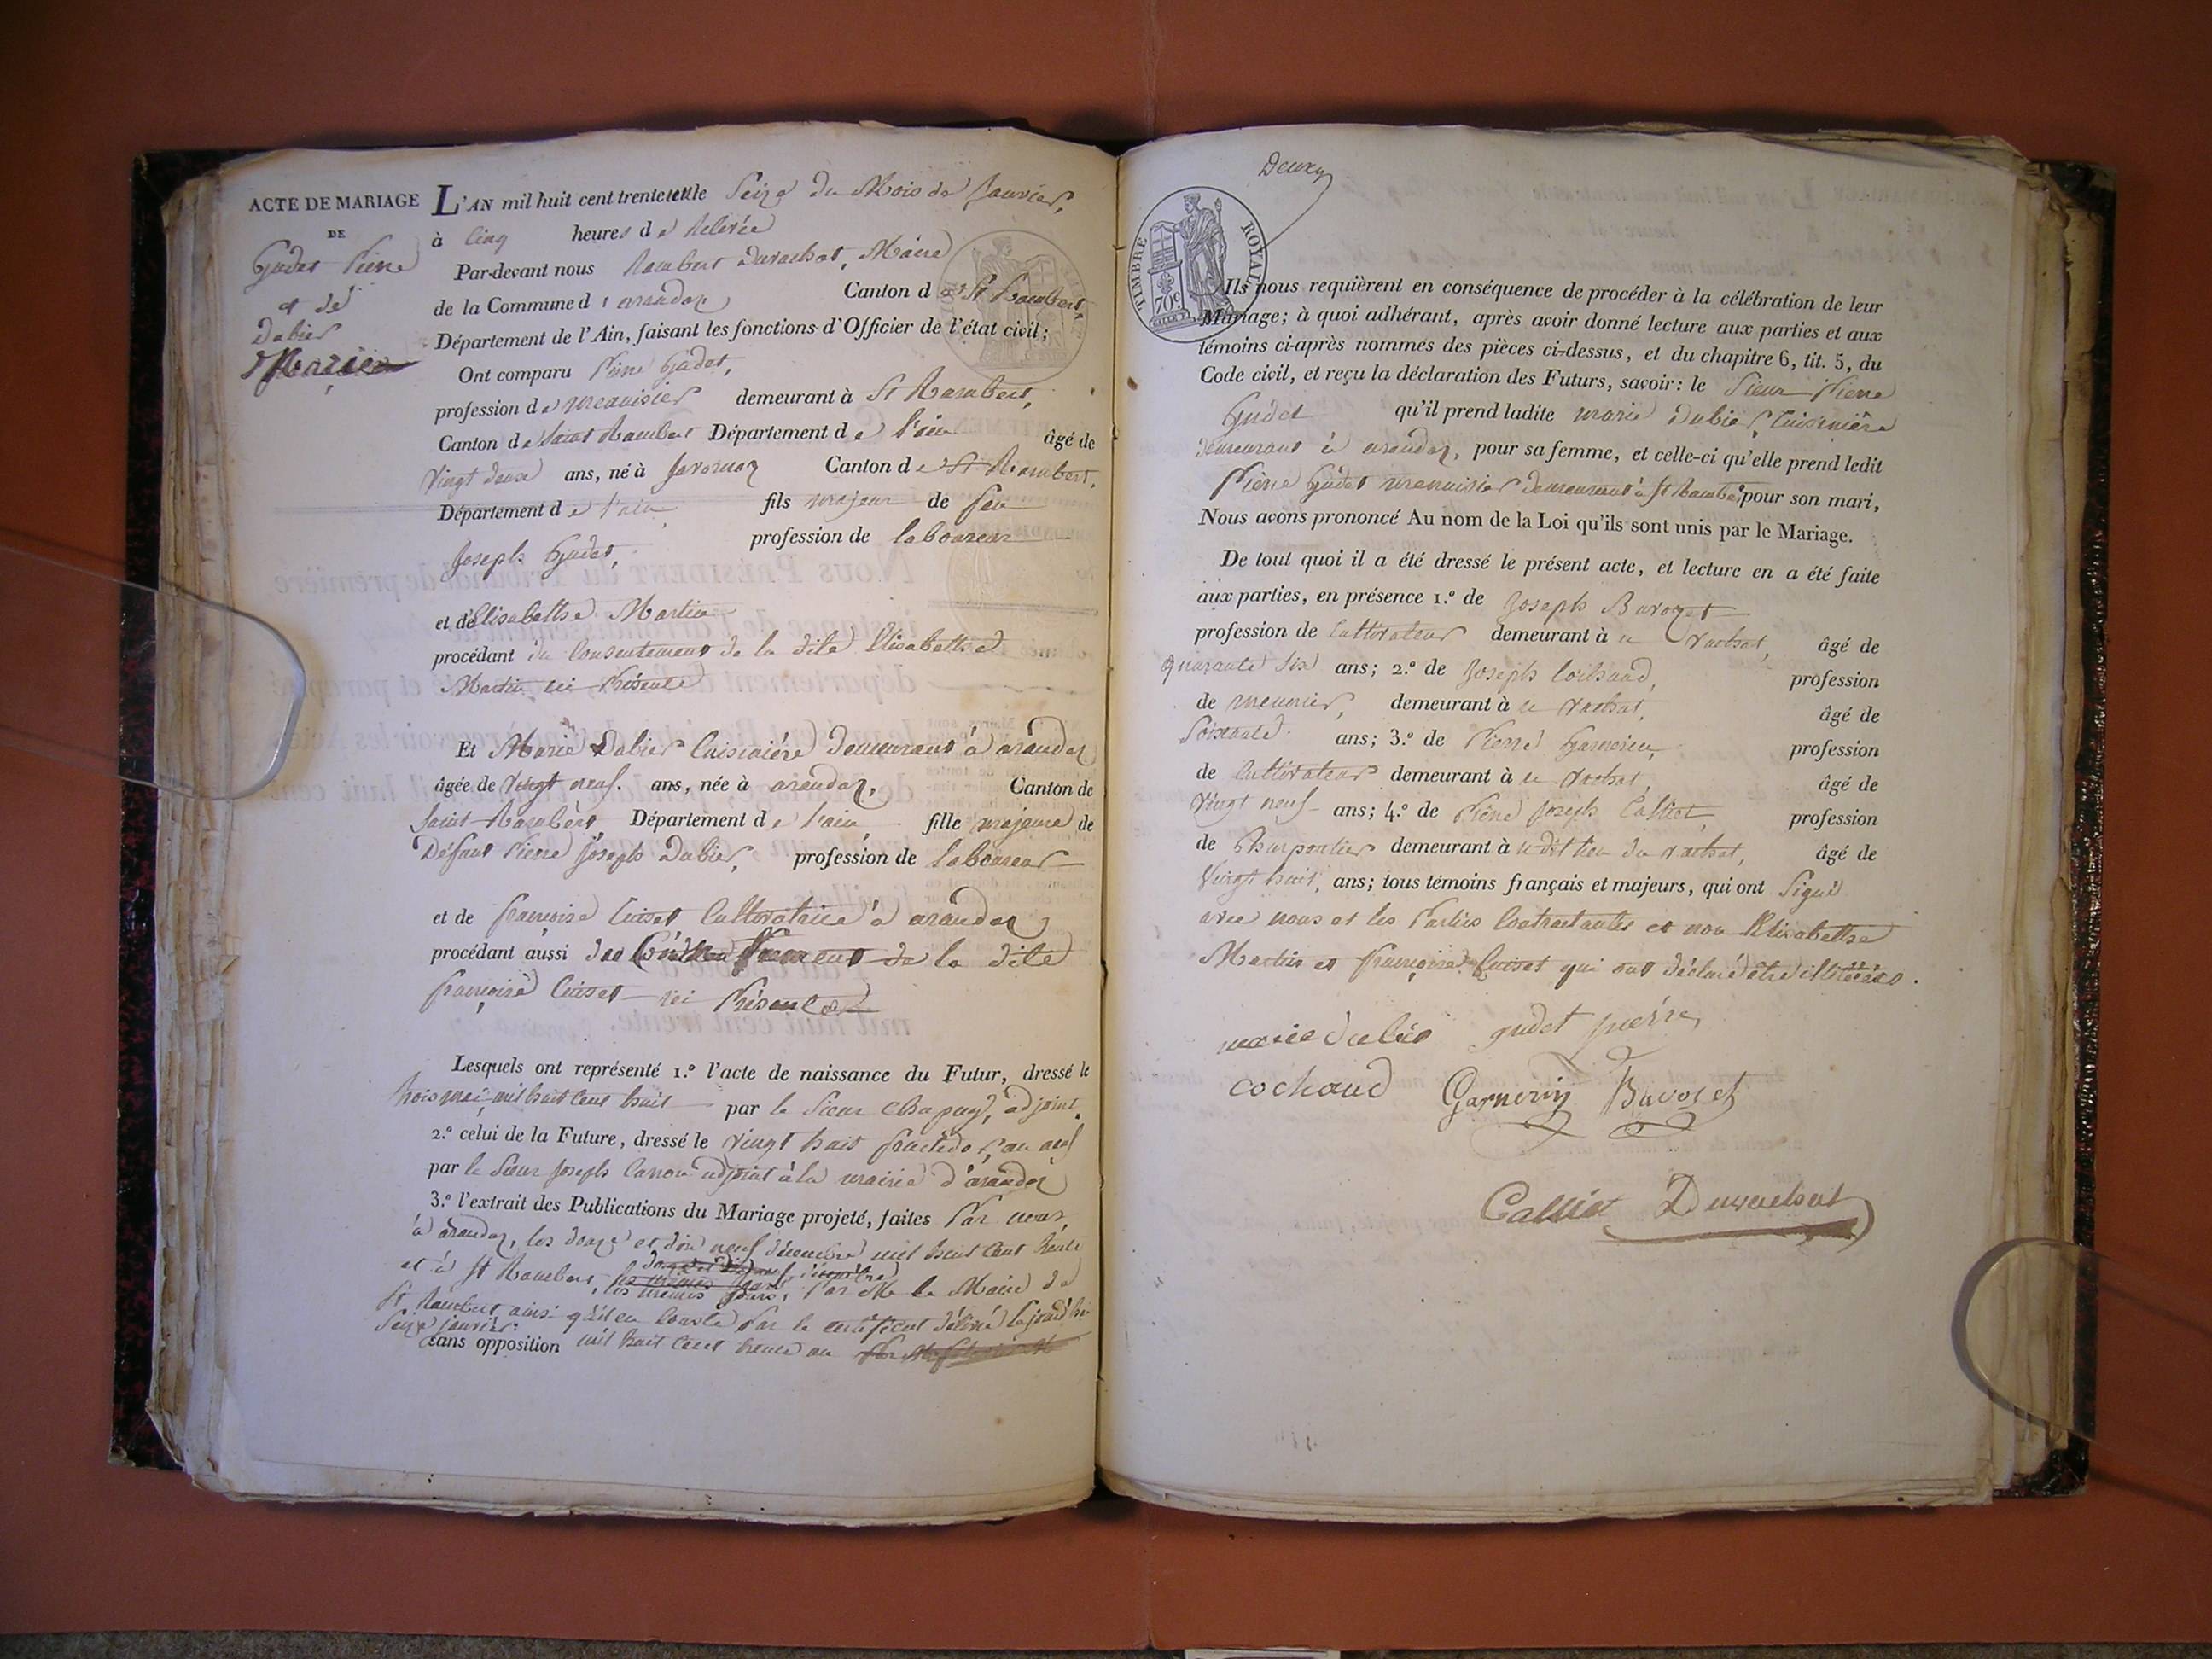 ACTE DE MARIAGE
DE
Gudet Pierre
et de
Dubier
Marie
L'AN mil huit cent trente et un le Seize du Mois de Janvier,
à Cinq heures de relevée
Par-devant nous Rambert Durochat, Maire
de la Commune d'arandaz Canton de St Rambert
Département de l'Ain, faisant les fonctions d'Officier de l'état civil;
Ont comparu Pierre Gudet,
profession de menuisier demeurant à St Rambert,
Canton de Saint Rambert Département de l'ain âgé de
Vingt deux ans, né à Javornoz Canton de St Rambert.
Département de l'ain fils majeur de feu
Joseph Gudet, profession de laboureur
et d'Elisabethe Martin
procédant du Consentement de la dite Elisabethe
Martin ici Présente
Et Marie Dubier Cuisinière demeurant à arandaz
âgée de Vingt neuf. ans, née à arandaz, Canton de
Saint Rambert Département de l'ain fille majeure de
Défunt Pierre Joseph Dubier, profession de laboureur
et de françoise Cuiset Cultivatrice à arandaz
procédant aussi du Consentement de la dite
françoise Cuiset ici Présente
Lesquels ont représenté 1.º l'acte de naissance du Futur, dressé le
trois mai mil huit Cent huit par le Sieur Chapuy, adjoint.
2.º celui de la Future, dressé le vingt huit fructidor, an neuf
par le Sieur Joseph Carron adjoint à la mairie d'arandaz
3.º l'extrait des Publications du Mariage projeté, faites Par nous,
à arandaz, les douze et dix neuf décembre mil huit Cent trente
et à St Rambert, les mêmes jours, Par Mr le Maire de
St Rambert, ainsi qu'il en Conste Par le certificat délivré Cejourd'hui
Seize janvier.
sans opposition mil huit Cent trente un
Deux
TIMBRE ROYAL
70c.
Ils nous requièrent en conséquence de procéder à la célébration de leur
Mariage; à quoi adhérant, après avoir donné lecture aux parties et aux
témoins ci-après nommés des pièces ci-dessus, et du chapitre 6, tit. 5, du
Code civil, et reçu la déclaration des Futurs, savoir: le Sieur Pierre
Gudet qu'il prend ladite marie Dubier, Cuisinière
demeurant à arandaz, pour sa femme, et celle-ci qu'elle prend ledit
Pierre Gudet menuisier demeurant à St Rambert pour son mari,
Nous avons prononcé Au nom de la Loi qu'ils sont unis par le Mariage.
De tout quoi il a été dressé le présent acte, et lecture en a été faite
aux parties, en présence 1.º de Joseph Buvozet
profession de Cultivateur demeurant à âgé de
quarante Six ans; 2.º de Joseph Cochaud, profession
de meunier, demeurant à âgé de
Soixante ans; 3.º de Pierre Garnerin, profession
de Cultivateur demeurant à âgé de
Vingt neuf ans; 4.º de Pierre Joseph Calliet, profession
de Charpentier demeurant à âgé de
Vingt huit, ans; tous témoins français et majeurs, qui ont Signé
avec nous et les Parties Contractantes et non Elisabethe
Martin et françoise Cuiset qui ont déclaré être illitérées.
marie dubier gudet pierre
cochaud Garnerin Buvozet
Calliet Durochat